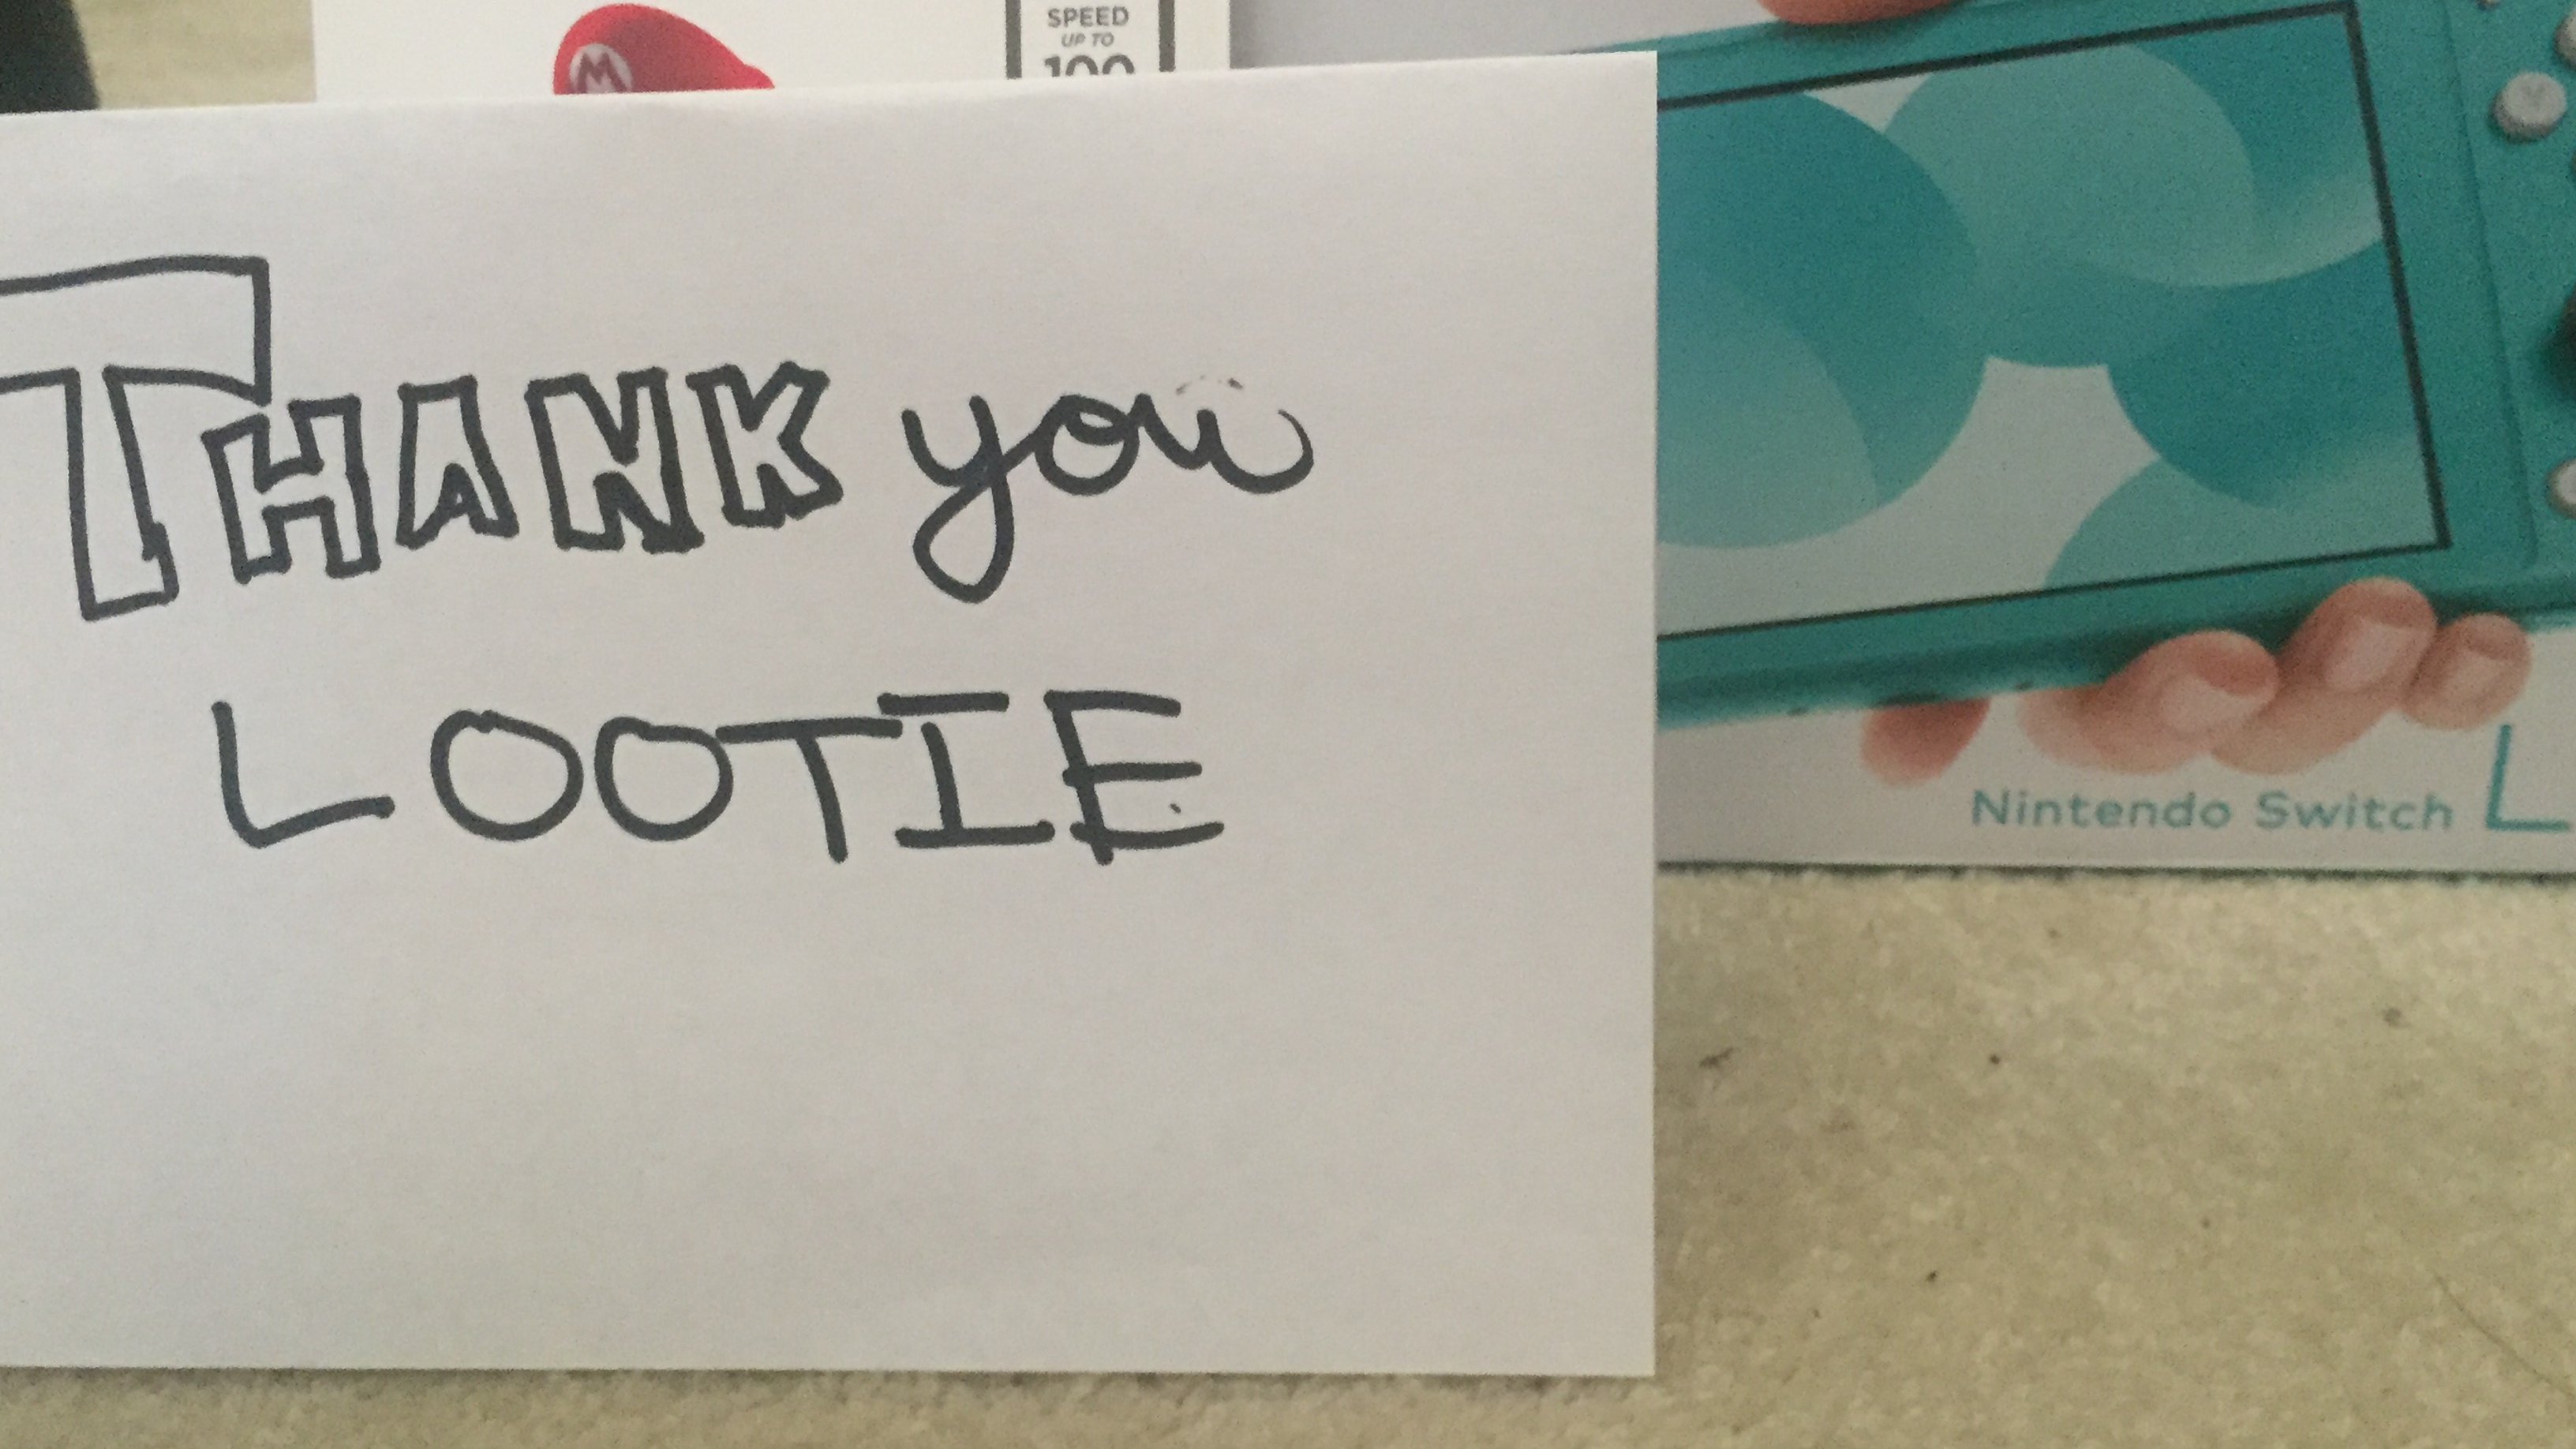 M
SPEED
UP TO
100
THANK you
LOOTIE
Nintendo Switch L